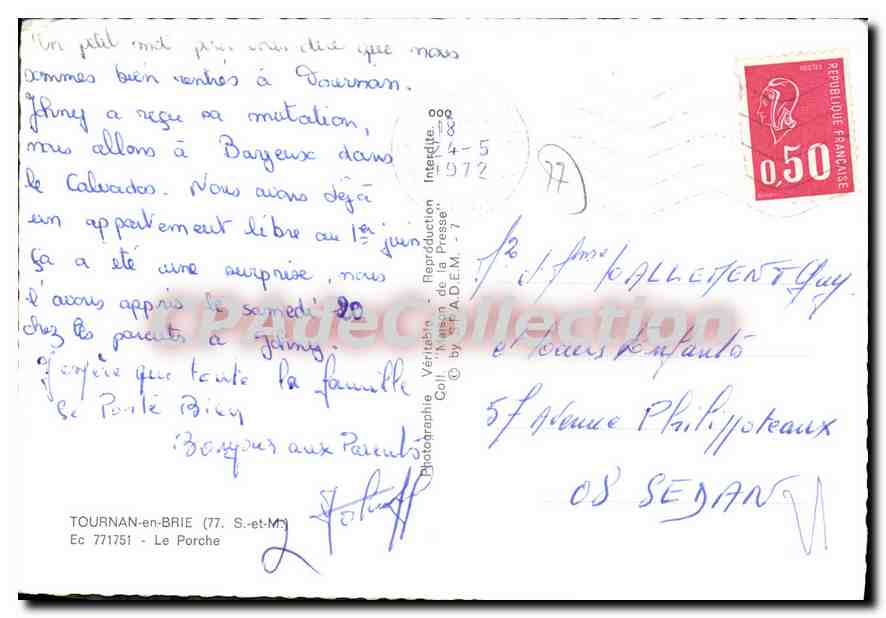 Un petit mot pour vous dire que nous
sommes bien rentrés à Tournan.
Johny a reçu sa mutation,
nous allons à Bayeux dans
le Calvados. Nous avons déjà
un appartement libre au 1er juin
ça a été une surprise, nous
l'avons appris le samedi 20
chez les parents à Johny.
J'espère que toute la famille
se Porte Bien
Bonjour aux Parents
TOURNAN-en-BRIE (77. S.-et-M.)
Ec 771751 - Le Porche
Photographie Véritable - Reproduction Interdite
Coll. "Maison de la Presse"
© by S.P.A.D.E.M. - 7
18
24-5
1972
77
POSTES
REPUBLIQUE FRANÇAISE
0,50
LALLEMENT Guy
et Leurs Enfants
57 Avenue Philippoteaux
08 SEDAN
CPAdeCollection